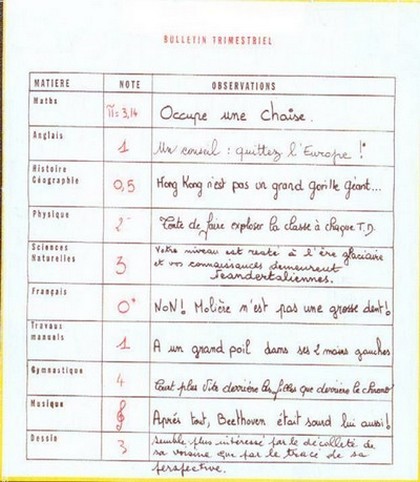 BULLETIN TRIMESTRIEL
MATIERE NOTE OBSERVATIONS
Maths π = 3,14 Occupe une chaise.
Anglais 1 Un conseil : quittez l'Europe !
Histoire
Géographie 0,5 Hong Kong n'est pas un grand gorille géant...
Physique 2- Tente de faire exploser la classe à chaque T.D.
Sciences
Naturelles 3 Votre niveau est resté à l'ère glaciaire
et vos connaissances demeurent
neandertaliennes.
Français 0+ NON! Molière n'est pas une grosse dent!
Travaux
manuels 1 A un grand poil dans ses 2 mains gauches
Gymnastique 4 Court plus vite derrière les filles que derrière le chrono!
Musique 𝄞 Après tout, Beethoven était sourd lui aussi!
Dessin 3 Semble plus intéressé par le décolleté de
sa voisine que par le tracé de sa
perspective.